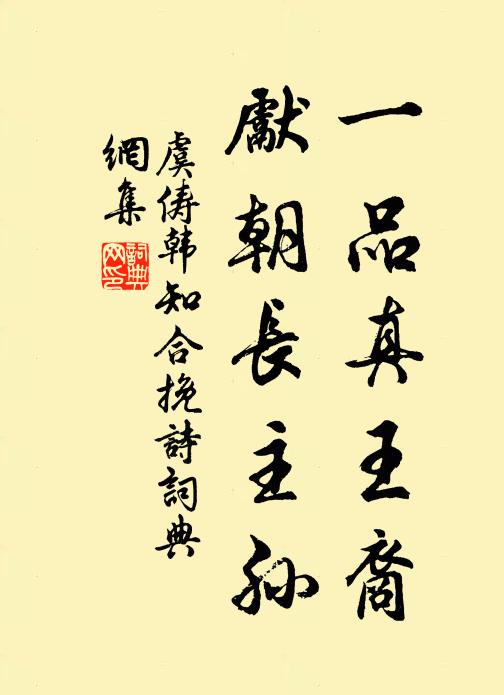 一品真王裔
獻朝長主孫
虞俦韩知合挽詩詞典
網集
詞典网印